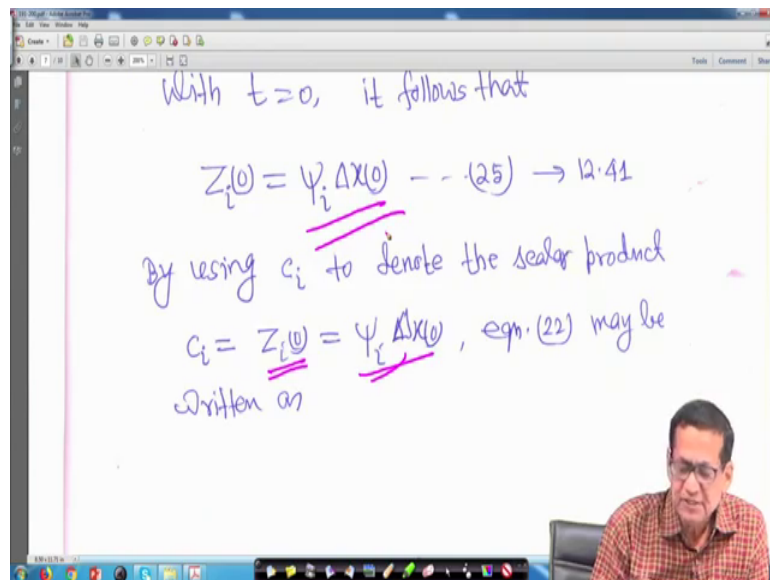 File Edit View Window Help
Create
Tools Comment Share
With t=0, it follows that
Zᵢ(0) = ψᵢ ΔX(0) -- --(25) → 12.41
By using cᵢ to denote the scalar product
cᵢ = Zᵢ(0) = ψᵢ ΔX(0), eqn. (22) may be
written as